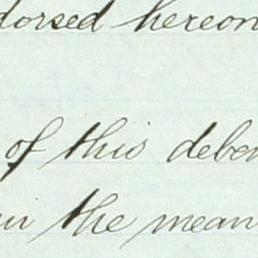 dorsed hereon
of this deben
in the mean